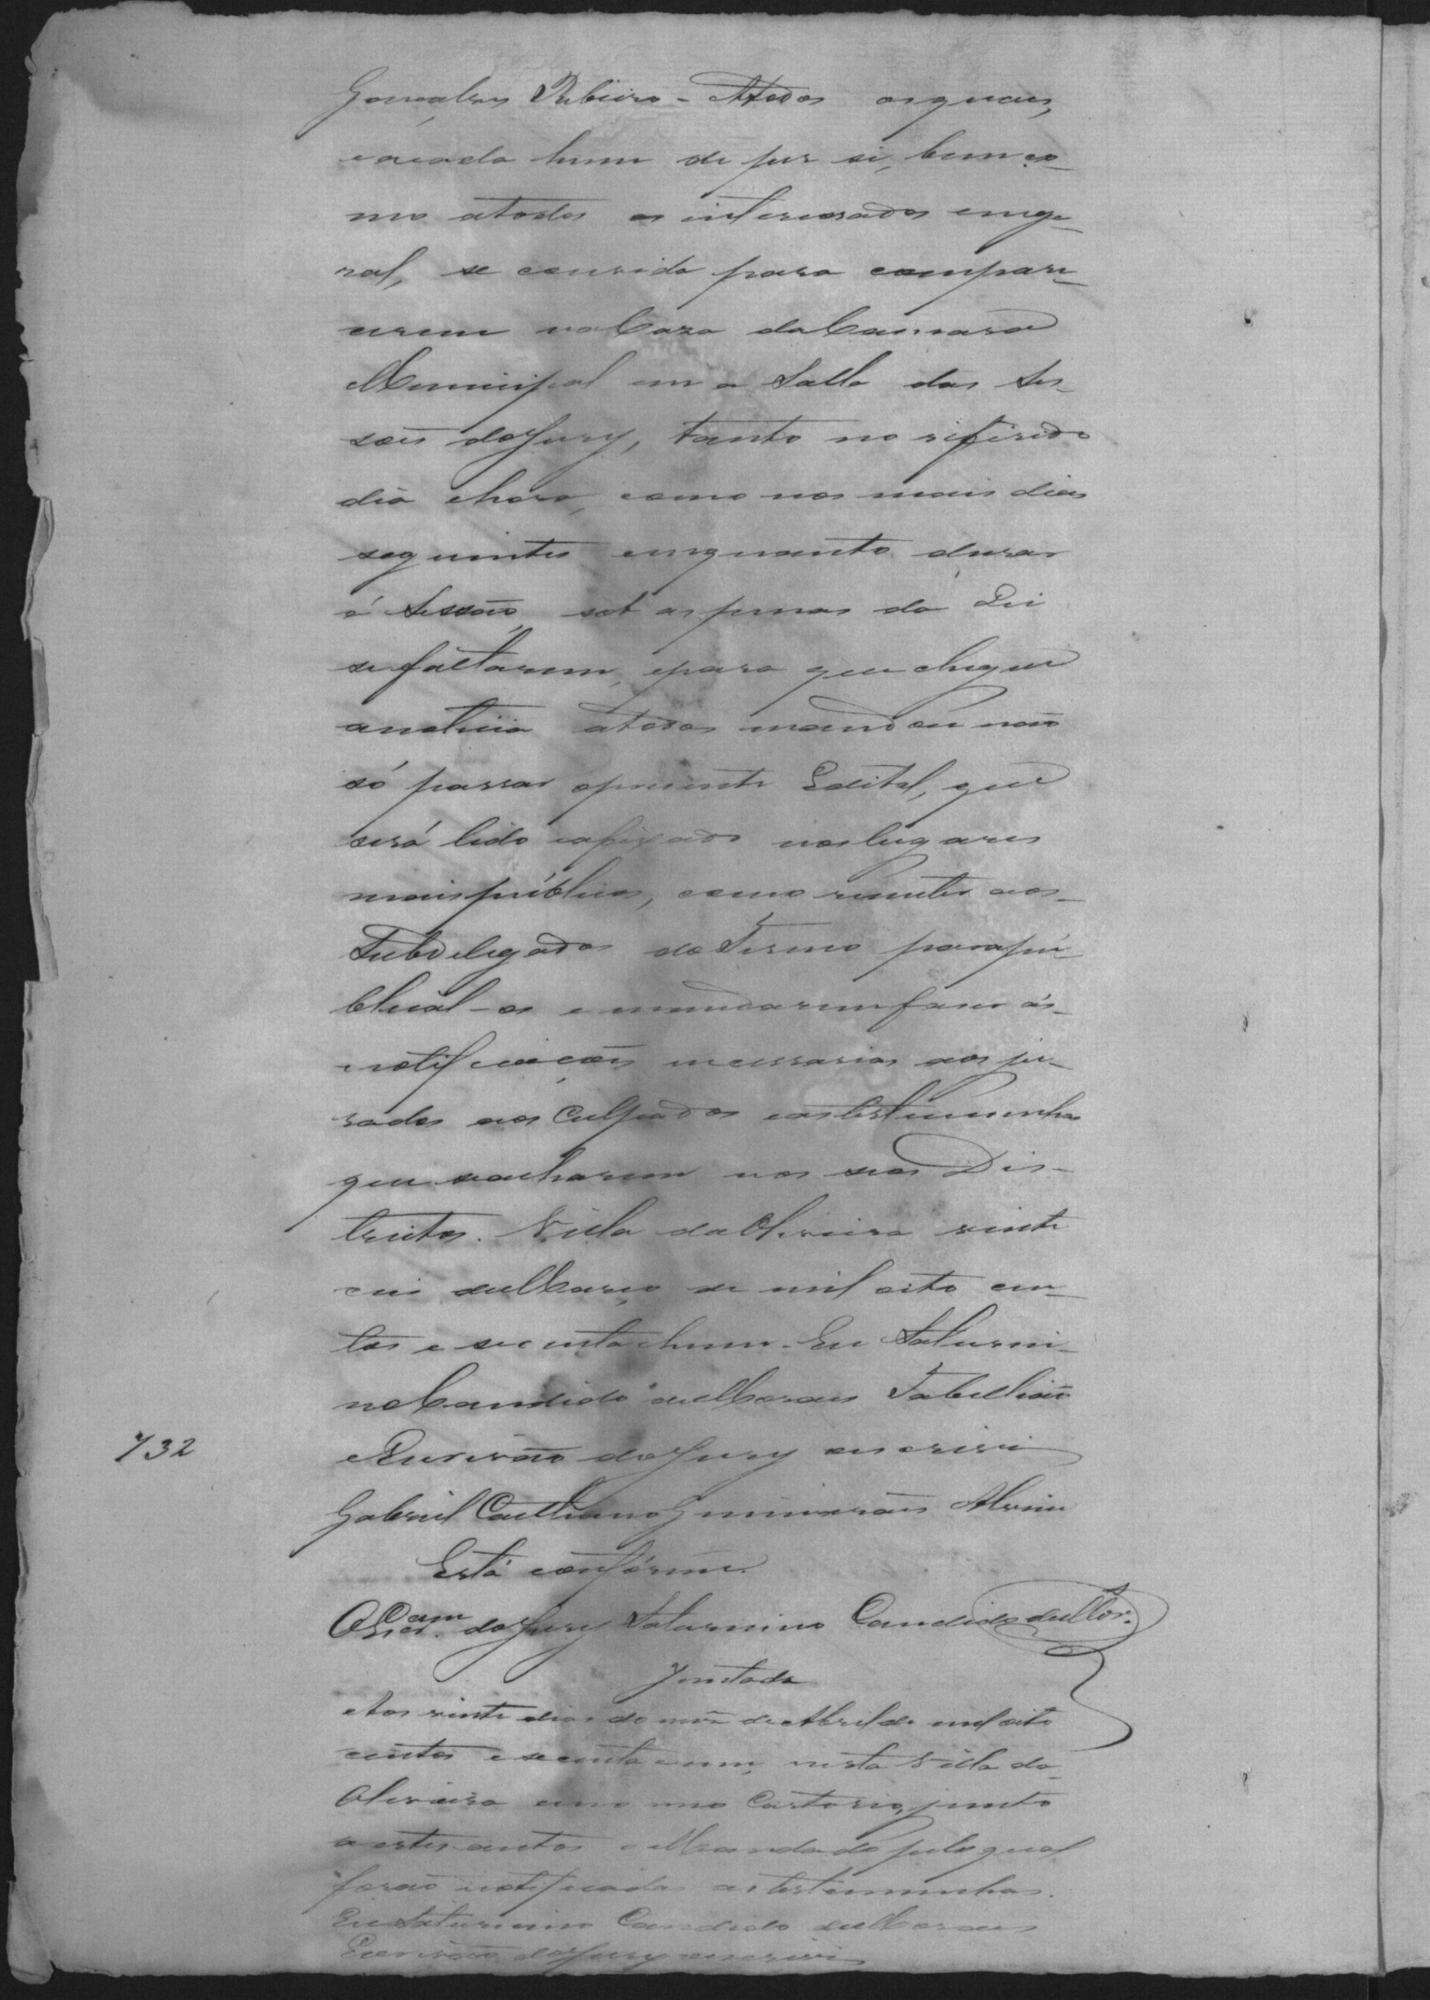 Gonçalves Ribeiro - Atodos osquaes,
eacada hum de per si, bem co-
mo atodos os interessados emge-
ral, se convida para compare-
cerem na Caza da Camara
Municipal em a Salla das Ses-
soens do Jury, tanto no referido
dia ehora, como nos mais dias
seguintes emquanto durar
a Sessão, sob as penas da Lei
se faltarem, epara que chegue
anoticia atodos mandou não
só passar opresente Edital, que
será lido eafixado noslugares
mais publicos, como remeter aos
Subdelegados doTermo parapu-
blical-os e mandarem fazer as
notificaçoens necessarias aos ju-
rados aos Culpados easTestemunhas
que seacharem nos seos Dis-
trictos. Villa da Oliveira vinte
seis deMarço de mil oito cen-
tos e secenta ehum. Eu Saturni-
no Candido deMoraes Tabellião
eEscrivão do Jury oescrevi
Gabriel Caetano Guimarães Alvim
Está conforme.
OEscr.am do Jury Saturnino Candido deMor.
Juntada
Aos vinte dias do mes deAbril de miloito
centos e secenta eum, nesta Villa da
Oliveira em meo Cartorio, junto
aestes autos oMandado peloqual
forão notificadas as testemunhas.
Eu Saturnino Candido deMoraes
Escrivão do Jury oescrevi
732